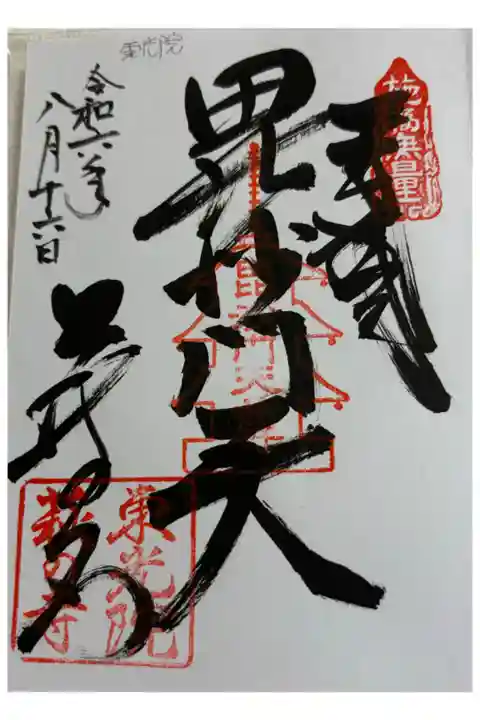 東光院
施福無量
毘沙門天
毘沙門天
令和六年
八月十六日
東光院
萩の寺